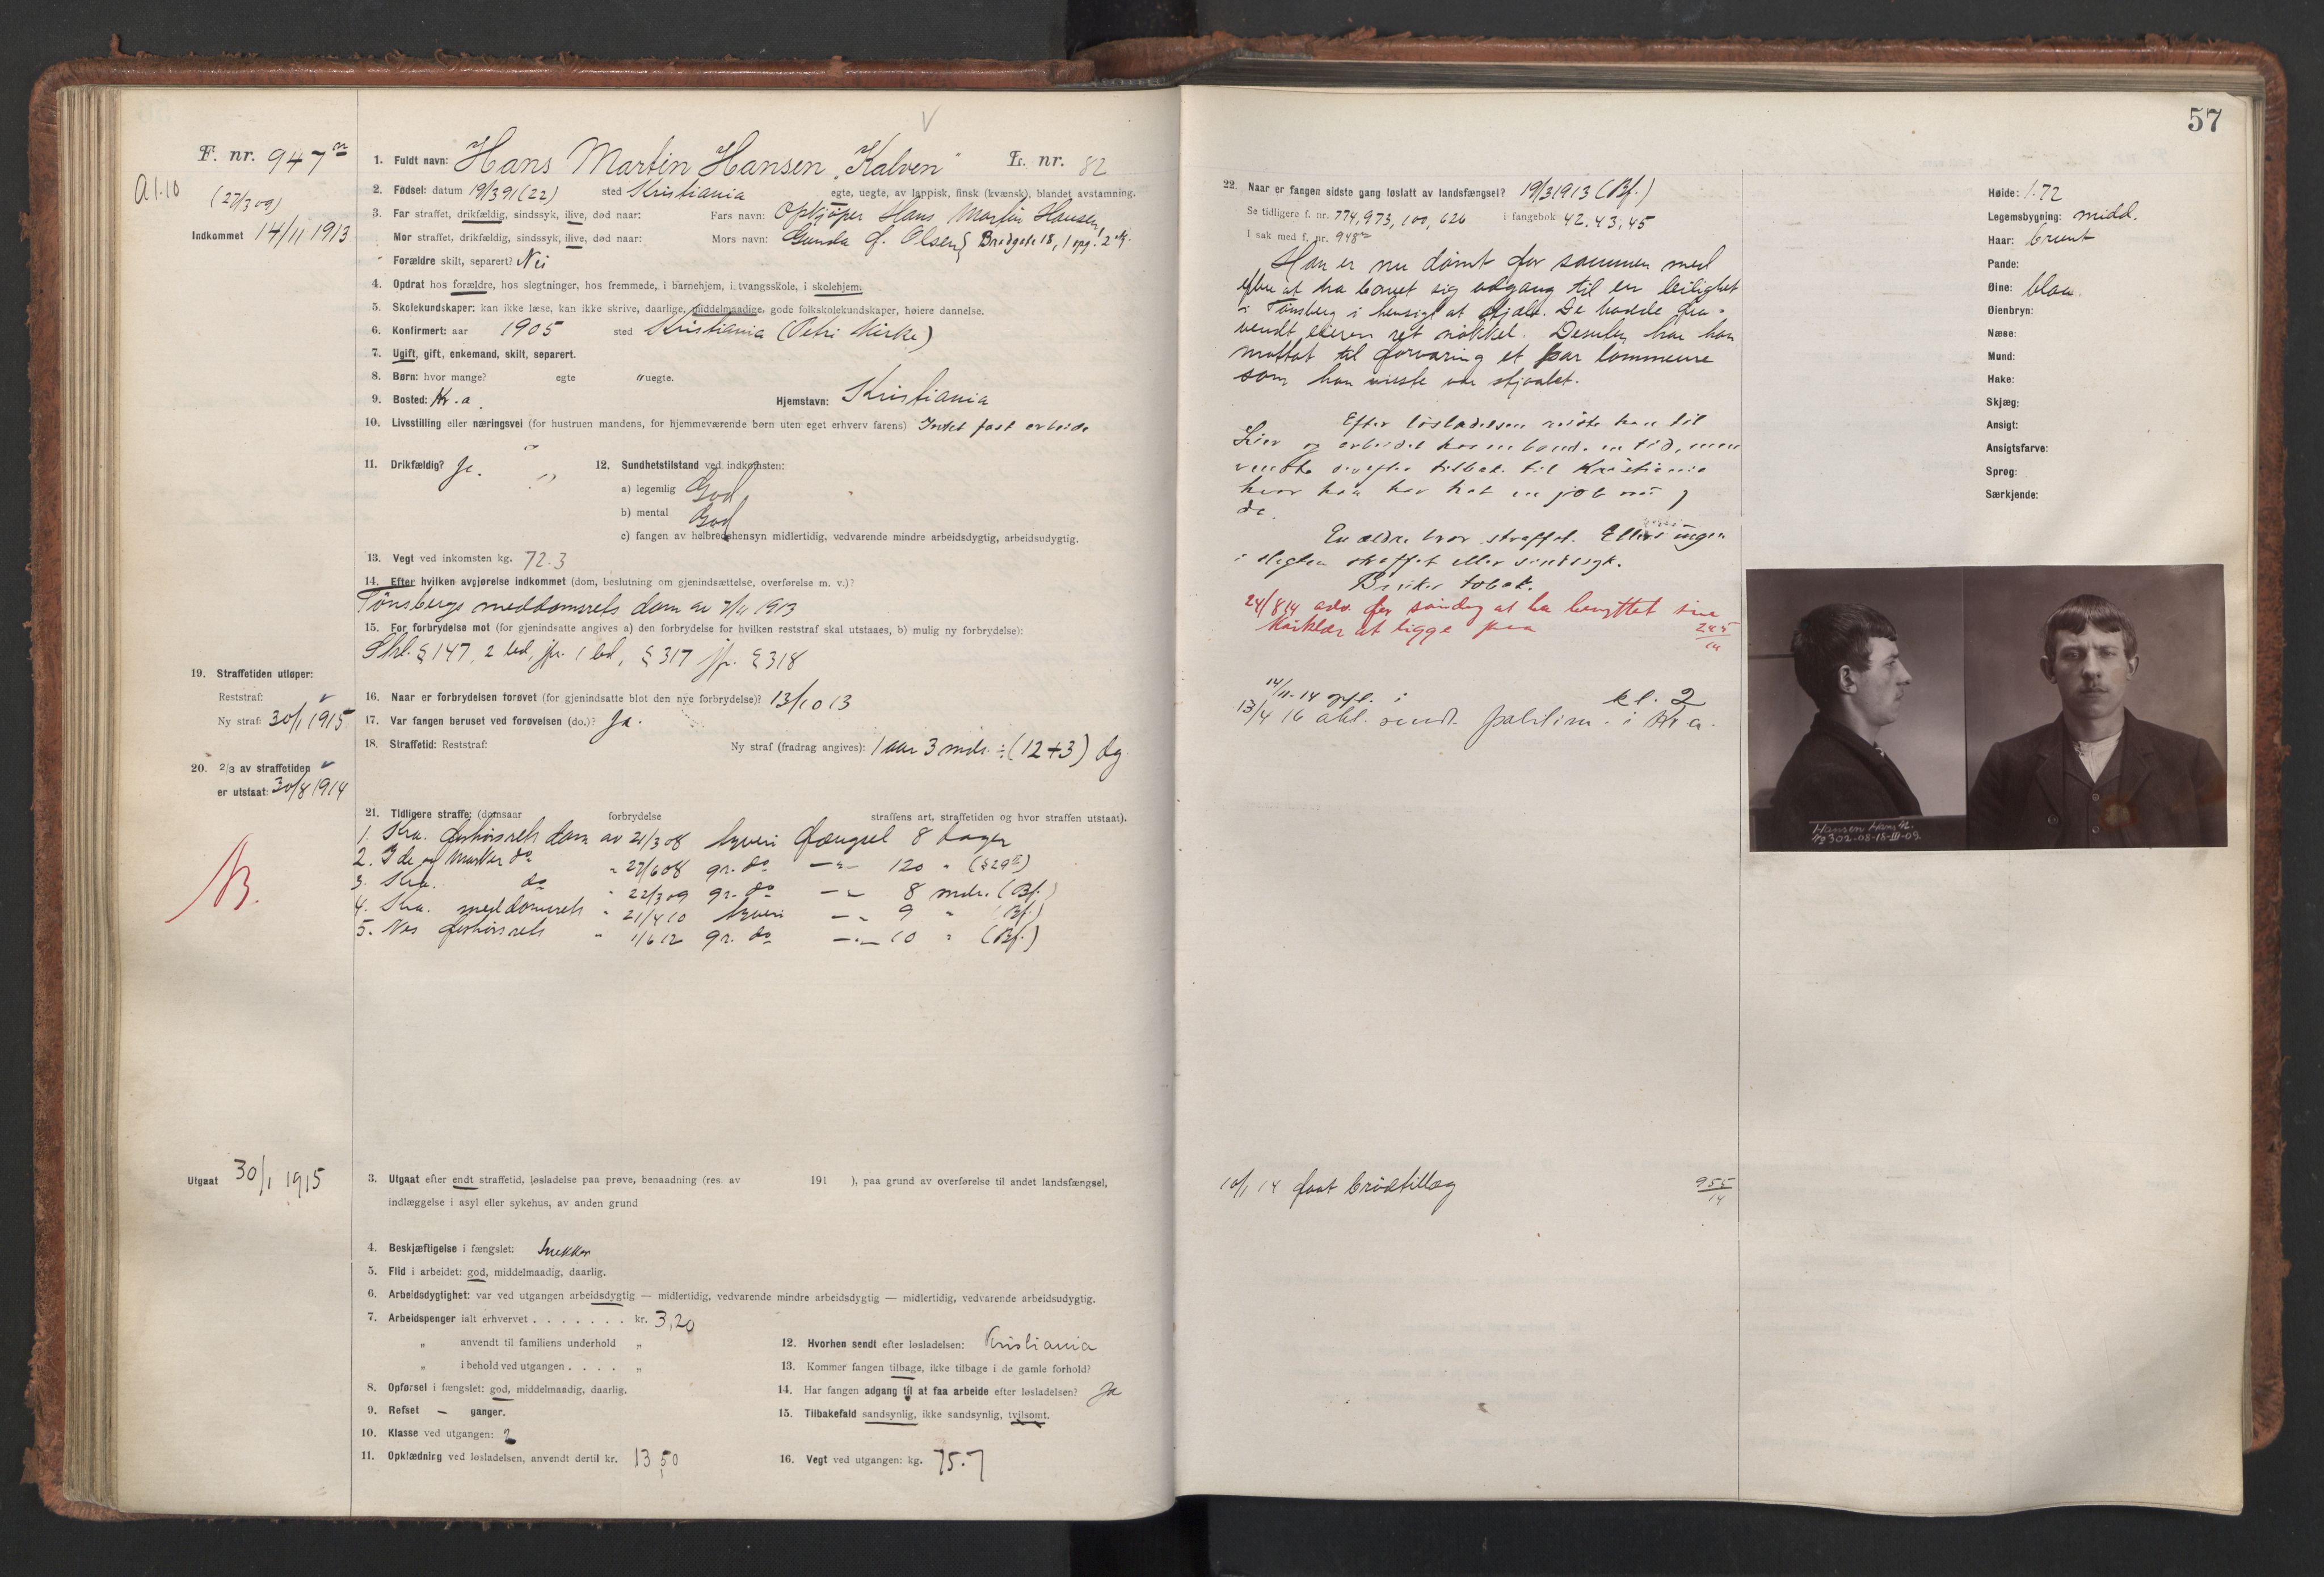 57
F. nr. 947
A1.10
(27/3 09)
Indkommet 14/11 1913
1. Fuldt navn: Hans Martin Hansen "Kalven" L. nr. 82
2. Fødsel: datum 19/3 91 (22) sted Kristiania egte, uegte, av lappisk, finsk (kvænsk), blandet avstamning.
3. Far straffet, drikfældig, sindssyk, ilive, død naar: Fars navn: Opkjøper Hans Martin Hansen
Mor straffet, drikfældig, sindssyk, ilive, død naar: Mors navn: Gunda f. Olsen Bredgate 18, 1 opg. 2
Forældre skilt, separert? Nei
4. Opdrat hos forældre, hos slegtninger, hos fremmede, i barnehjem, i tvangsskole, i skolehjem.
5. Skolekundskaper: kan ikke læse, kan ikke skrive, daarlige, middelmaadige, gode folkskolekundskaper, høiere dannelse.
6. Konfirmert: aar 1905 sted Kristiania (Petri Kirke)
7. Ugift, gift, enkemand, skilt, separert.
8. Børn: hvor mange? egte " uegte.
9. Bosted: Kr.a. Hjemstavn: Kristiania
10. Livsstilling eller næringsvei (for hustruen mandens, for hjemmeværende børn uten eget erhverv farens) Intet fast arbeide
11. Drikfældig? Ja. 12. Sundhetstilstand ved indkomsten:
a) legemlig God
b) mental God
c) fangen av helbredshensyn midlertidig, vedvarende mindre arbeidsdygtig, arbeidsudygtig.
13. Vegt ved inkomsten kg. 72.3
14. Efter hvilken avgjørelse indkommet (dom, beslutning om gjenindsættelse, overførelse m. v.)?
Tønsbergs meddomsrets dom av 7/11 1913
15. For forbrydelse mot (for gjenindsatte angives a) den forbrydelse for hvilken reststraf skal utstaaes, b) mulig ny forbrydelse):
Strl. § 147, 2 led, jfr. 1 led, § 317 jfr. § 318
19. Straffetiden utløper:
Reststraf:
Ny straf: 30/1 1915
16. Naar er forbrydelsen forøvet (for gjenindsatte blot den nye forbrydelse)? 13/10 13
17. Var fangen beruset ved forøvelsen (do.)? Ja.
18. Straffetid: Reststraf: Ny straf (fradrag angives): 1 aar 3 mdr. ÷ (12+3) dg.
20. 2/3 av straffetiden
er utstaat: 30/8 1914
21. Tidligere straffe: (domsaar forbrydelse straffens art, straffetiden og hvor straffen utstaat).
1. Kra. forhørsrets dom av 21/3 08 tyveri fængsel 8 dager
2. Ide og Marker do " 27/6 08 gr. do — " — 120 " (§ 29 II)
3. Kra. do " 22/3 09 gr. do — " 8 mdr. (Bf.)
4. Kra. meddomsrets " 21/4 10 tyveri — " 9 " (Bf.)
5. Nes forhørsrets " 1/6 12 gr. do — " — 10 " (Bf.)
Utgaat 30/1 1915
3. Utgaat efter endt straffetid, løsladelse paa prøve, benaadning (res. av 191 ), paa grund av overførelse til andet landsfængsel,
indlæggelse i asyl eller sykehus, av anden grund
4. Beskjæftigelse i fængslet: snekker
5. Flid i arbeidet: god, middelmaadig, daarlig.
6. Arbeidsdygtighet: var ved utgangen arbeidsdygtig — midlertidig, vedvarende mindre arbeidsdygtig — midlertidig, vedvarende arbeidsudygtig.
7. Arbeidspenger ialt erhvervet . . . . . . . kr. 3,20
" anvendt til familiens underhold "
" i behold ved utgangen . . . . "
8. Opførsel i fængslet: god, middelmaadig, daarlig.
9. Refset — ganger.
10. Klasse ved utgangen: 2
11. Opklædning ved løsladelsen, anvendt dertil kr. 13,50
12. Hvorhen sendt efter løsladelsen: Kristiania
13. Kommer fangen tilbage, ikke tilbage i de gamle forhold?
14. Har fangen adgang til at faa arbeide efter løsladelsen? Ja
15. Tilbakefald sandsynlig, ikke sandsynlig, tvilsomt.
16. Vegt ved utgangen: kg. 75.7
22. Naar er fangen sidste gang løslatt av landsfængsel? 19/3 1913 (Bf.)
Se tidligere f. nr. 774, 973, 100, 626 i fangebok 42, 43, 45
I sak med f. nr. 948
Han er nu dømt for sammen med
at ha banet sig adgang til en leilighet
i Tønsberg i hensigt at stjæle. De hadde
vendt eieren ret nøkkel. Desuten har han
mottat til forvaring et par lommeure
som han visste var stjaalet.
Efter løsladelsen reiste han til
Lier og arbeidet hos en bonde en tid, men
tilbake til Kristiania
hvor han har hat en job nu og
da.
En ældre bror straffet. Ellers ingen
i slegten straffet eller sindssyk.
Bruker tobak.
24/8 14 adv. for søndag at ha benyttet sine
at ligge paa 245/14
14/11-14 opfl. i kl. 2
13/4 16 akt. sendt politikam. i Kr.a.
10/1 14 faat brødtillæg 955/14
Høide: 1.72
Legemsbygning: midd.
Haar: brunt
Pande:
Øine: blaa
Øienbryn:
Næse:
Mund:
Hake:
Skjæg:
Ansigt:
Ansigtsfarve:
Sprog:
Særkjende:
Hansen Hans M.
302-08-18-III-09